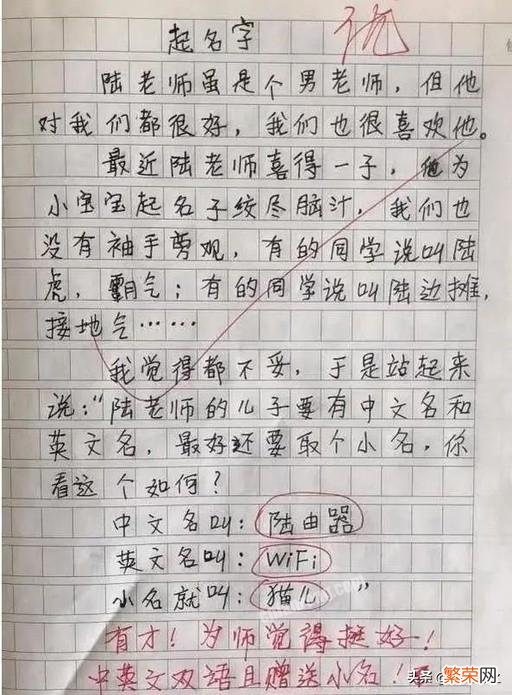 起名字
优
陆老师虽是个男老师，但他
对我们都很好，我们也很喜欢他。
最近陆老师喜得一子，他为
小宝宝起名子绞尽脑汁，我们也
没有袖手旁观，有的同学说叫陆
虎，霸气；有的同学说叫陆边摊，
接地气……
我觉得都不妥，于是站起来
说：“陆老师的儿子要有中文名和
英文名，最好还要取个小名，你
看这个如何？
中文名叫：陆由器
英文名叫：WiFi
小名就叫：猫儿”
有才！为师觉得挺好！
中英文双语且赠送小名！
头条
繁荣网